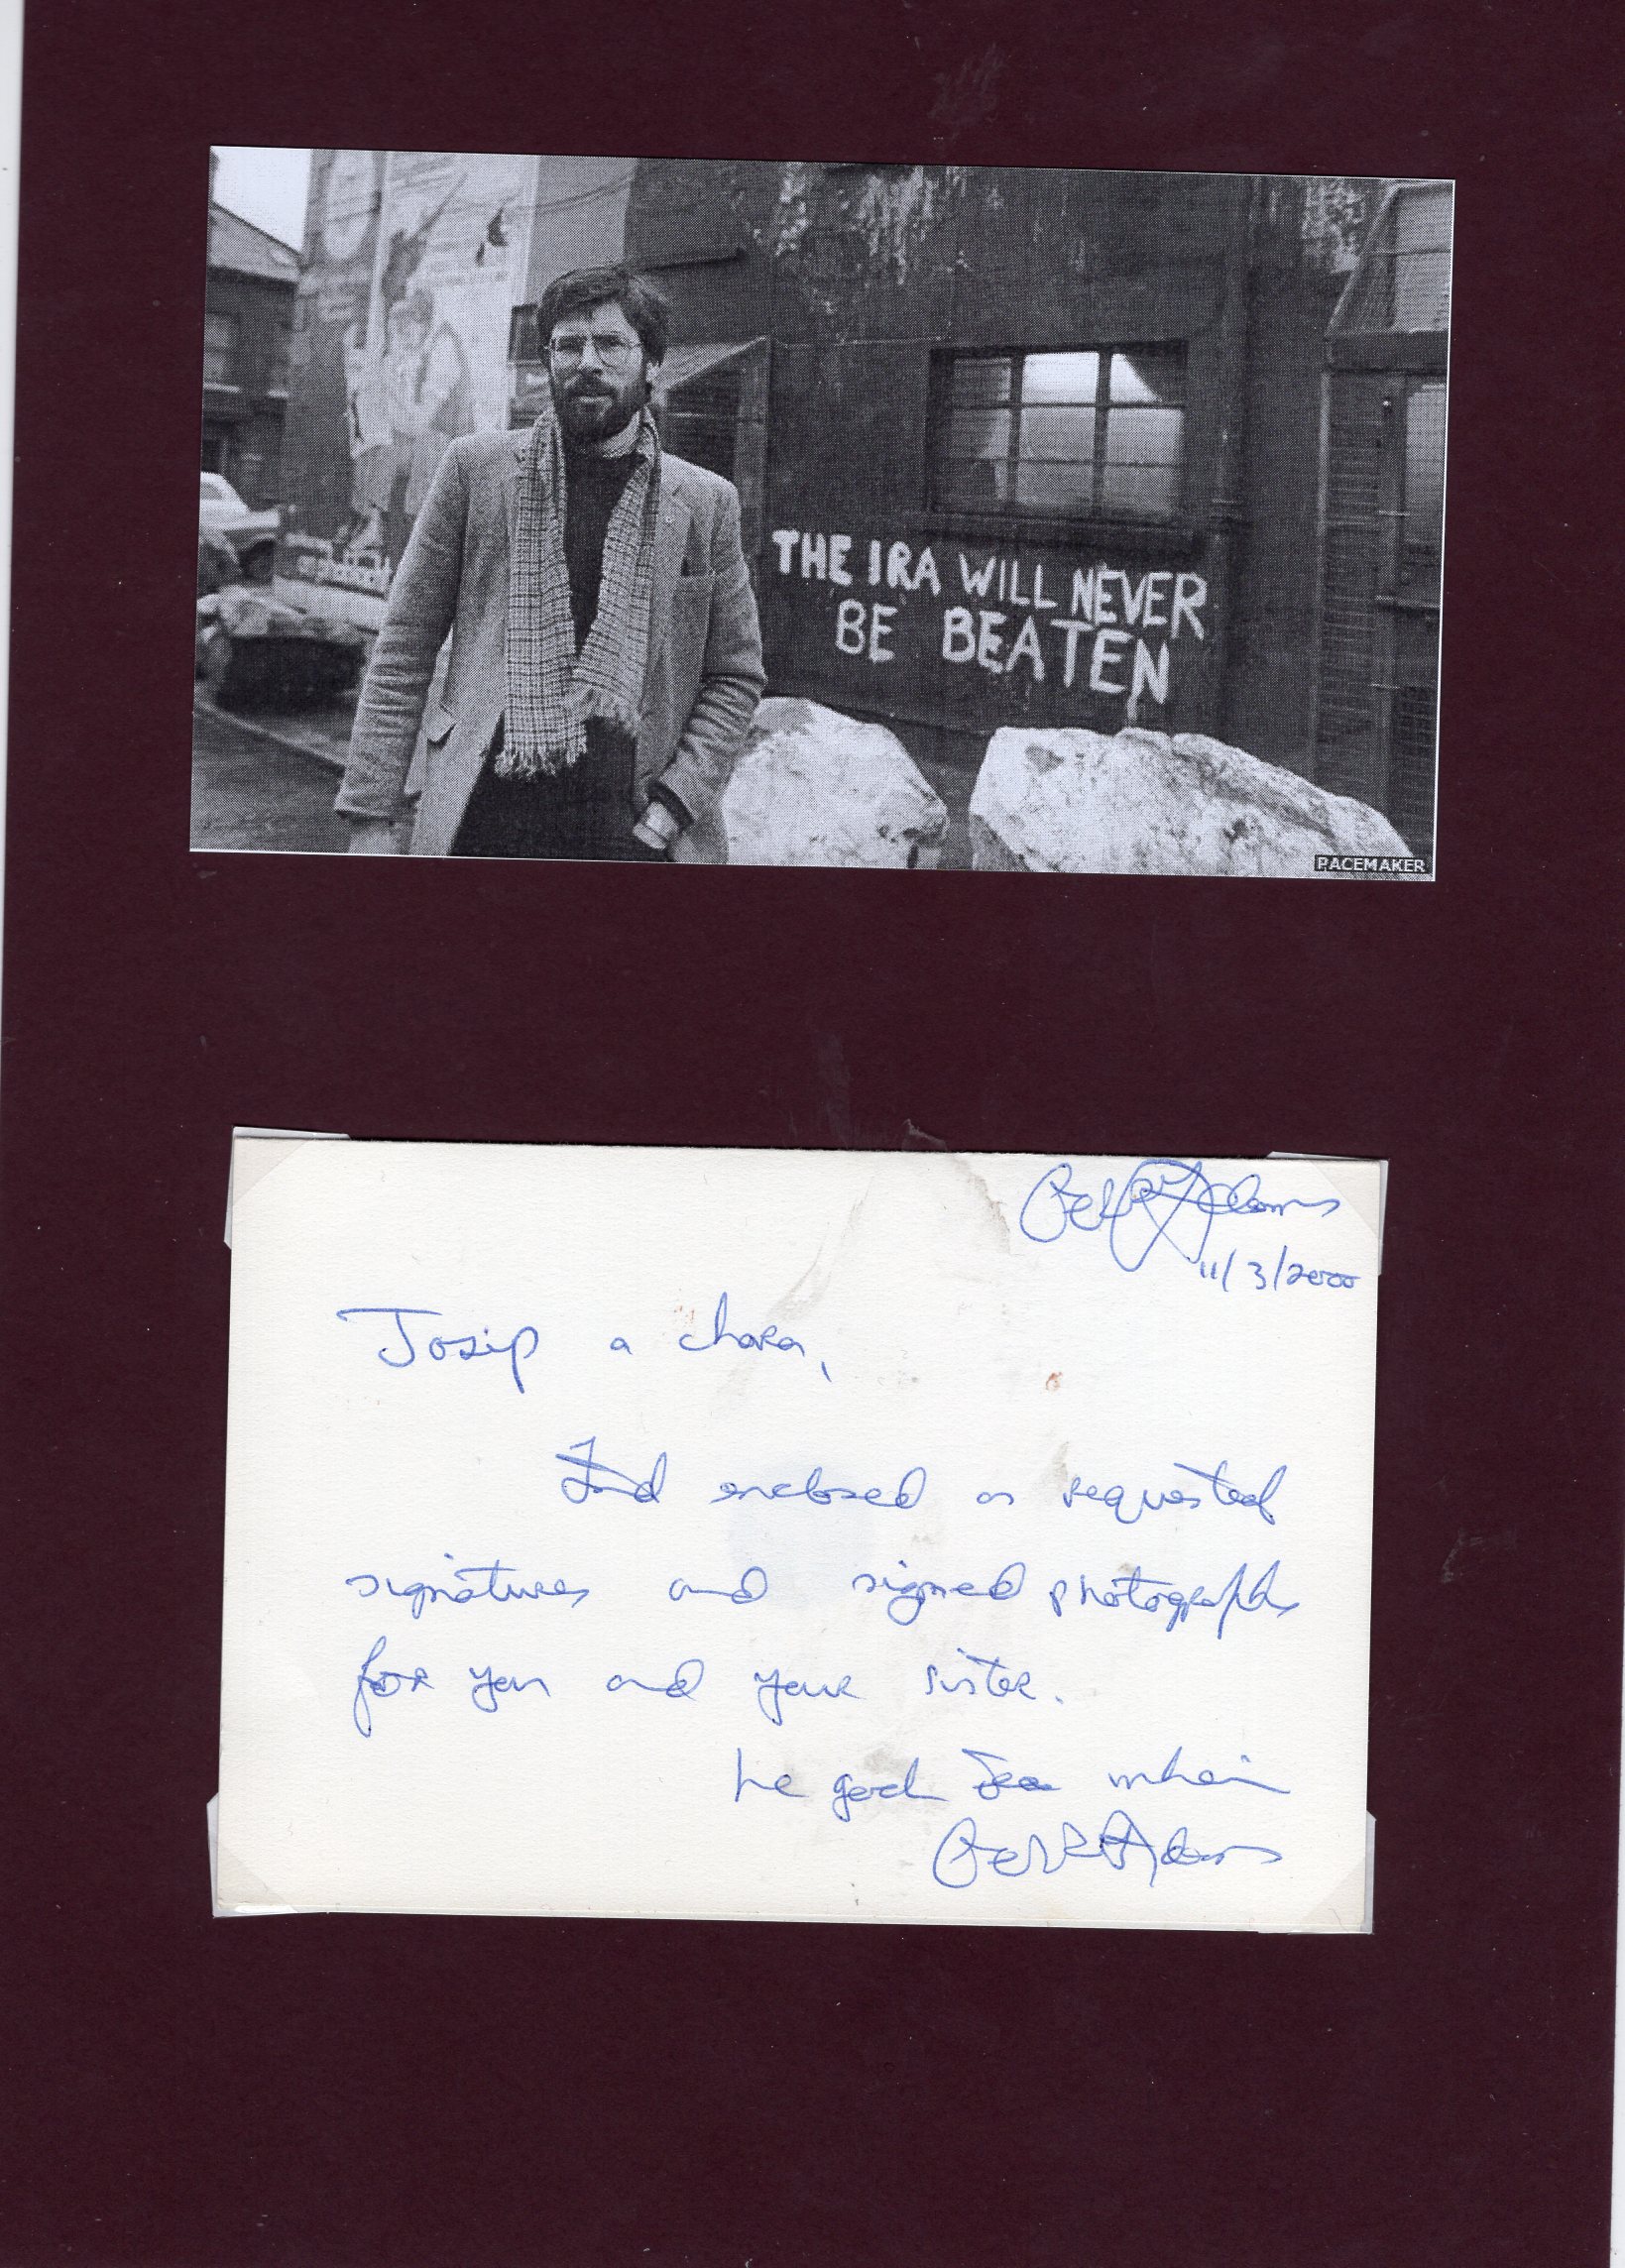 THE IRA WILL NEVER
BE BEATEN
PACEMAKER
Gerry Adams
11/3/2000
Josip a chara,
Find enclosed as requested
signatures and signed photographs
for you and your sister.
le gach dea mhéin
Gerry Adams